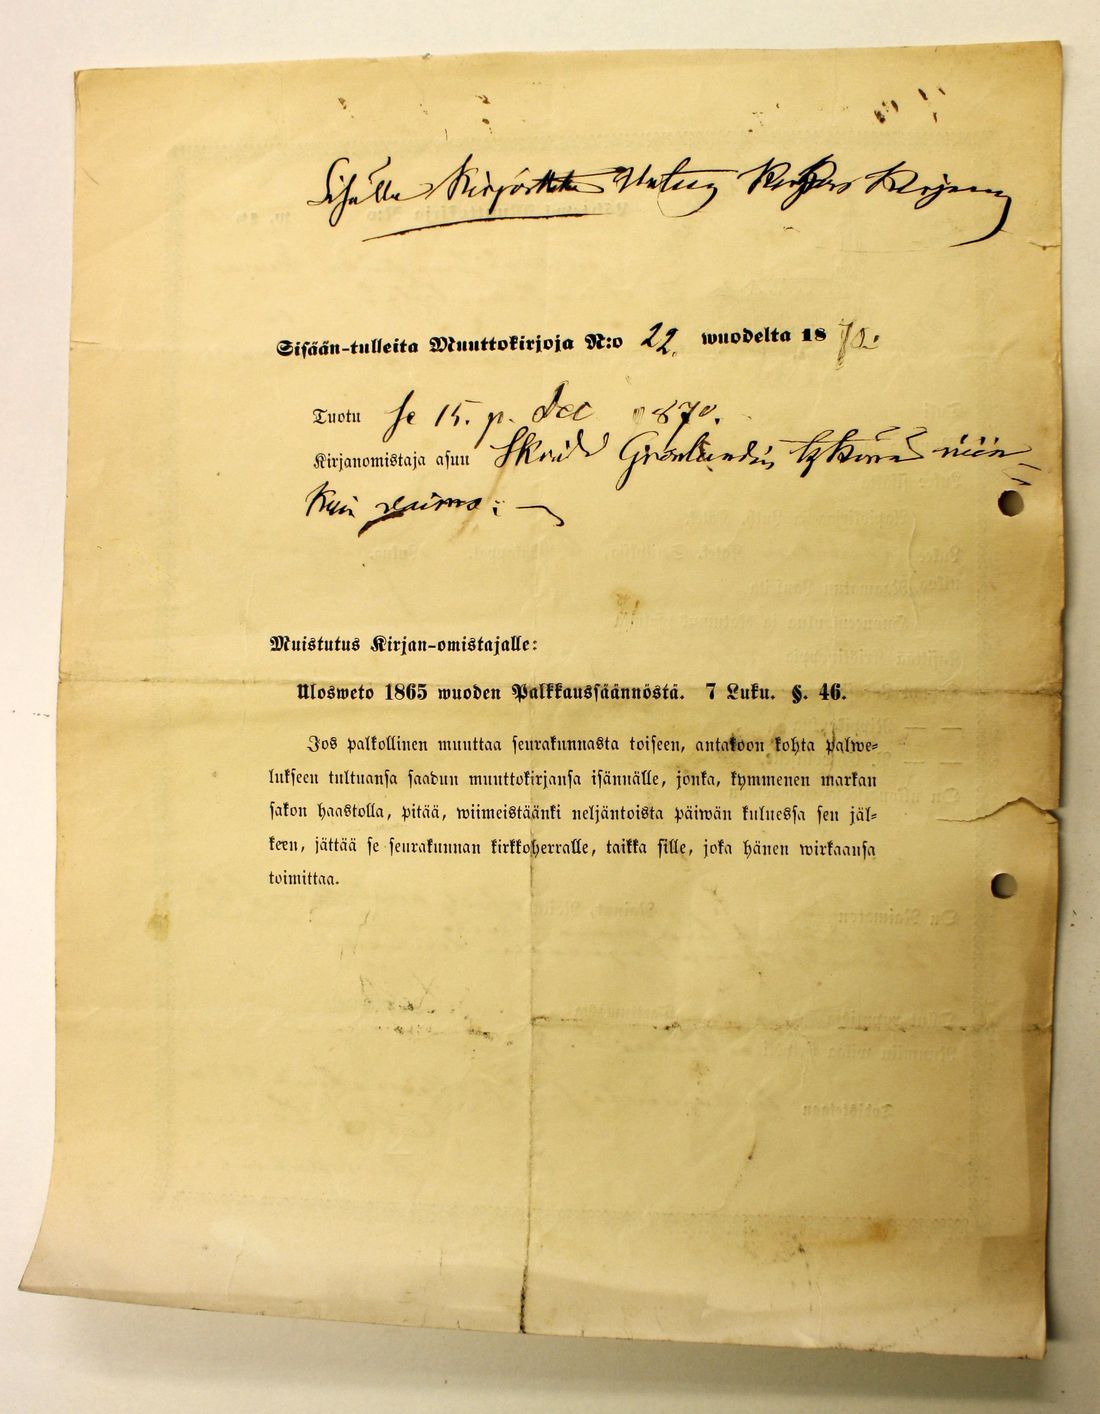 Sisään-tulleita Muuttokirjoja N:o 22. wuodelta 1870.
Tuotu se 15. p. Dec 1870.
Kirjanomistaja asuu Grönlundin niin
kuin
Muistutus Kirjan-omistajalle:
Ulosweto 1865 wuoden Palkkaussäännöstä. 7 Luku. §. 46.
Jos palkollinen muuttaa seurakunnasta toiseen, antakoon kohta palwe=
lukseen tultuansa saadun muuttokirjansa isännälle, jonka, kymmenen markan
sakon haastolla, pitää, wiimeistäänki neljäntoista päiwän kuluessa sen jäl=
keen, jättää se seurakunnan kirkkoherralle, taikka sille, joka hänen wirkaansa
toimittaa.